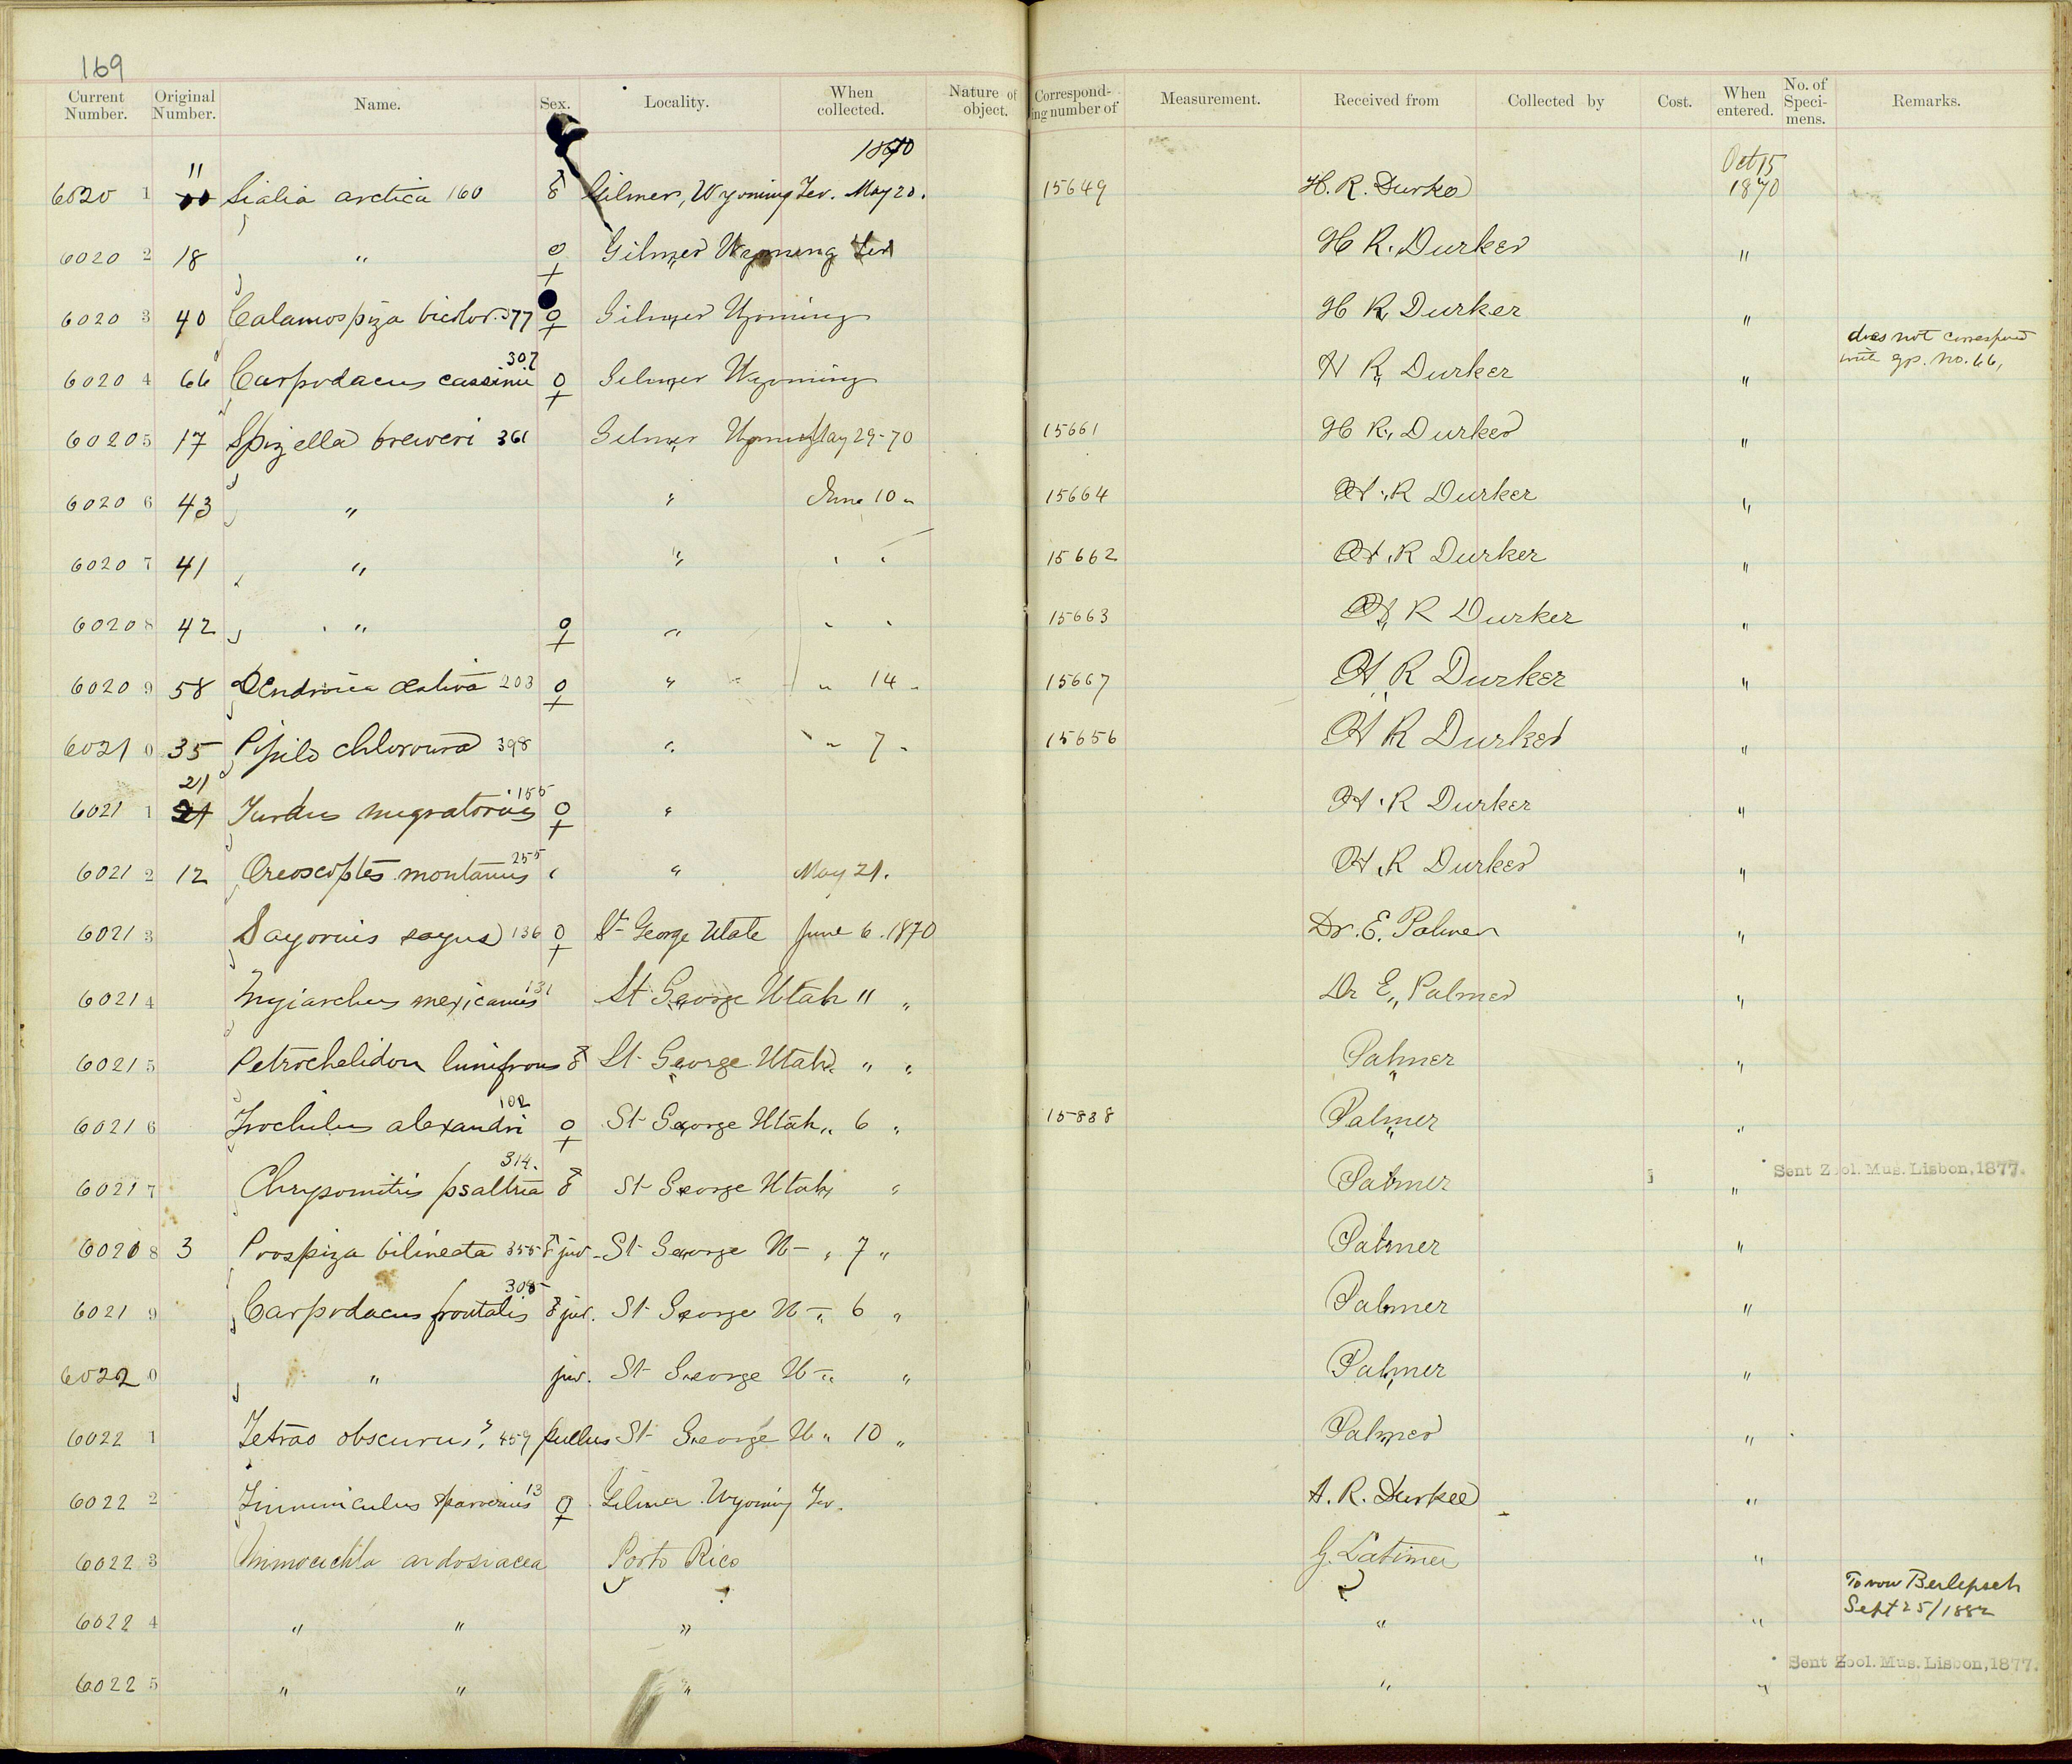 169
Current Number. Original Number. Name. Sex. Locality. When collected. Nature of object. Corresponding number of Measurement. Received from Collected by Cost. When entered. No. of Specimens. Remarks.
1870 Oct 15
6020 1 11 Sialia arctica 160 ♂ Gilmer, Wyoming Ter. May 20. 15649 H. R. Durkee 1870
6020 2 18 " ♀ Gilmer Wyoming Ter H R. Durkee "
6020 3 40 Calamospiza bicolor 377 ♀ Gilmer Wyoming H R Durker "
6020 4 66 Carpodacus cassinii 307 ♀ Gilmer Wyoming H R Durker " does not correspond with sp. No. 66,
6020 5 17 Spizella breweri 361 Gilmer Wyoming May 29-70 15661 H R. Durker "
6020 6 43 " " June 10 " 15664 H. R Durker "
6020 7 41 " " " " 15662 H. R Durker "
6020 8 42 " ♀ " " " 15663 H R Durker "
6020 9 58 Dendroica aestiva 203 ♀ " " 14 " 15667 H R Durker "
6021 0 35 Pipilo chlorura 398 " " 7 " 15656 H R Durker "
6021 1 21 Turdus migratorius 155 ♀ " H. R Durker "
6021 2 12 Oreoscoptes montanus 255 " " May 21. H. R Durker "
6021 3 Sayornis sayus 136 ♀ St George Utah June 6. 1870 Dr. E. Palmer "
6021 4 Myiarchus mexicanus 131 St George Utah " " Dr E. Palmer "
6021 5 Petrochelidon lunifrons ♂ St George Utah " " Palmer "
6021 6 Trochilus alexandri 102 ♀ St George Utah " 6 " 15838 Palmer "
6021 7 Chrysomitris psaltria 314. ♂ St George Utah " Palmer " Sent Zool. Mus. Lisbon, 1877.
6021 8 3 Poospiza bilineata 355 ♂ juv. St George U— " 7 " Palmer "
6021 9 Carpodacus frontalis 308 ♂ juv. St George U— " 6 " Palmer "
6022 0 " juv. St George U— " " Palmer "
6022 1 Tetrao obscurus? 459 pullus St George U " 10 " Palmer "
6022 2 Tinnunculus sparverius 13 ♀ Gilmer Wyoming Ter. H. R. Durkee "
6022 3 Mimocichla ardosiacea Porto Rico G. Latimer "
6022 4 " " " " " To von Berlepsch Sept 25/1882
6022 5 " " " " " Sent Zool. Mus. Lisbon, 1877.